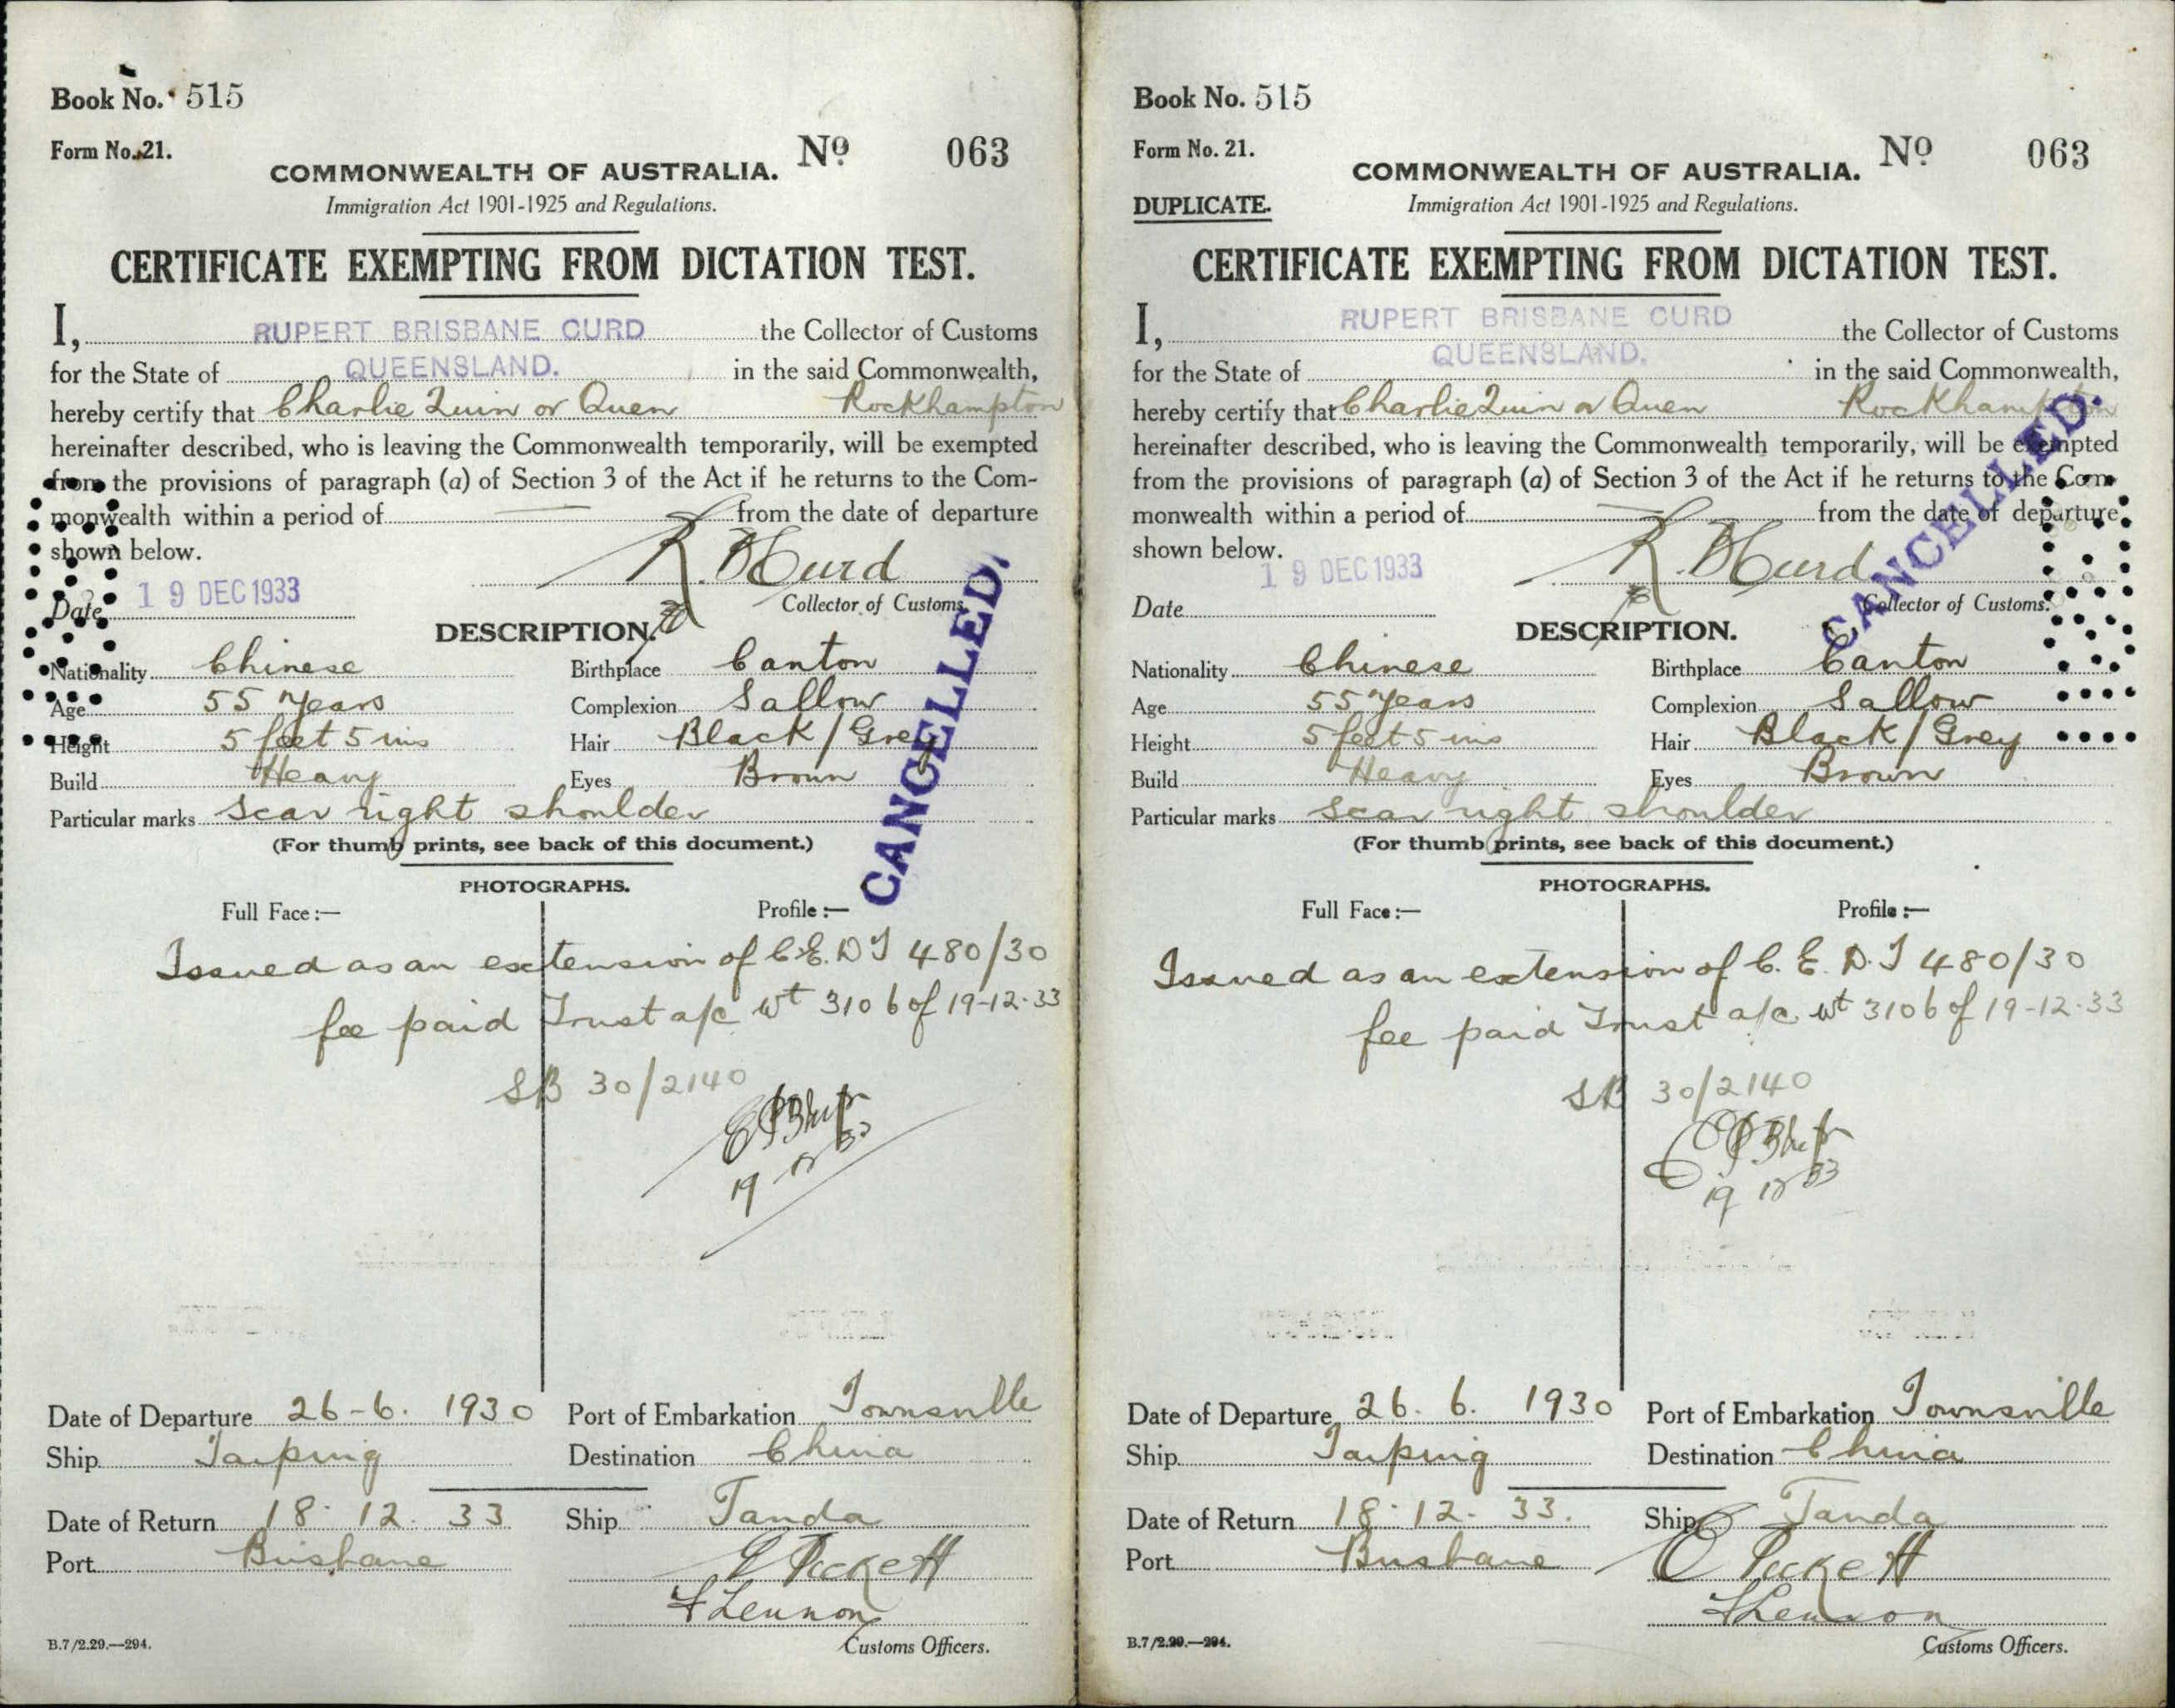 Book No. 515
Form No. 21.
COMMONWEALTH OF AUSTRALIA. No 063
Immigration Act 1901-1925 and Regulations.
CERTIFICATE EXEMPTING FROM DICTATION TEST.
I, RUPERT BRISBANE CURD the Collector of Customs
for the State of QUEENSLAND. in the said Commonwealth,
hereby certify that Charlie Quin or Quen Rockhampton
hereinafter described, who is leaving the Commonwealth temporarily, will be exempted
from the provisions of paragraph (a) of Section 3 of the Act if he returns to the Com-
monwealth within a period of from the date of departure
shown below.
R. B Curd
Date 19 DEC 1933
Collector of Customs.
CANCELLED.
DESCRIPTION.
Nationality Chinese Birthplace Canton
Age 55 years Complexion Sallow
Height 5 feet 5 ins Hair Black / Grey
Build Heavy Eyes Brown
Particular marks Scar right shoulder
(For thumb prints, see back of this document.)
PHOTOGRAPHS.
Full Face:— Profile:—
Issued as an extension of C.E.D T 480/30
fee paid Trust a/c wt 3106 of 19-12-33
SB 30/2140
19 12 33
Date of Departure 26-6. 1930 Port of Embarkation Townsville
Ship Taiping Destination China
Date of Return 18. 12. 33 Ship Tanda
Port Brisbane
Pickett
F Lennon
B.7/2.29.—294. Customs Officers.
Book No. 515
Form No. 21.
COMMONWEALTH OF AUSTRALIA. No 063
DUPLICATE. Immigration Act 1901-1925 and Regulations.
CERTIFICATE EXEMPTING FROM DICTATION TEST.
I, RUPERT BRISBANE CURD the Collector of Customs
for the State of QUEENSLAND. in the said Commonwealth,
hereby certify that Charlie Quin or Quen Rockhampton
hereinafter described, who is leaving the Commonwealth temporarily, will be exempted
from the provisions of paragraph (a) of Section 3 of the Act if he returns to the Com-
monwealth within a period of from the date of departure
shown below.
R. B Curd
Date 19 DEC 1933
Collector of Customs.
CANCELLED.
DESCRIPTION.
Nationality Chinese Birthplace Canton
Age 55 years Complexion Sallow
Height 5 feet 5 ins Hair Black / Grey
Build Heavy Eyes Brown
Particular marks Scar right shoulder
(For thumb prints, see back of this document.)
PHOTOGRAPHS.
Full Face:— Profile:—
Issued as an extension of C. E. D. T 480/30
fee paid Trust a/c wt 3106 of 19-12-33
SB 30/2140
19 12 33
Date of Departure 26. 6. 1930 Port of Embarkation Townsville
Ship Taiping Destination China
Date of Return 18. 12. 33. Ship Tanda
Port Brisbane
Pickett
F Lennon
B.7/2.29.—294. Customs Officers.